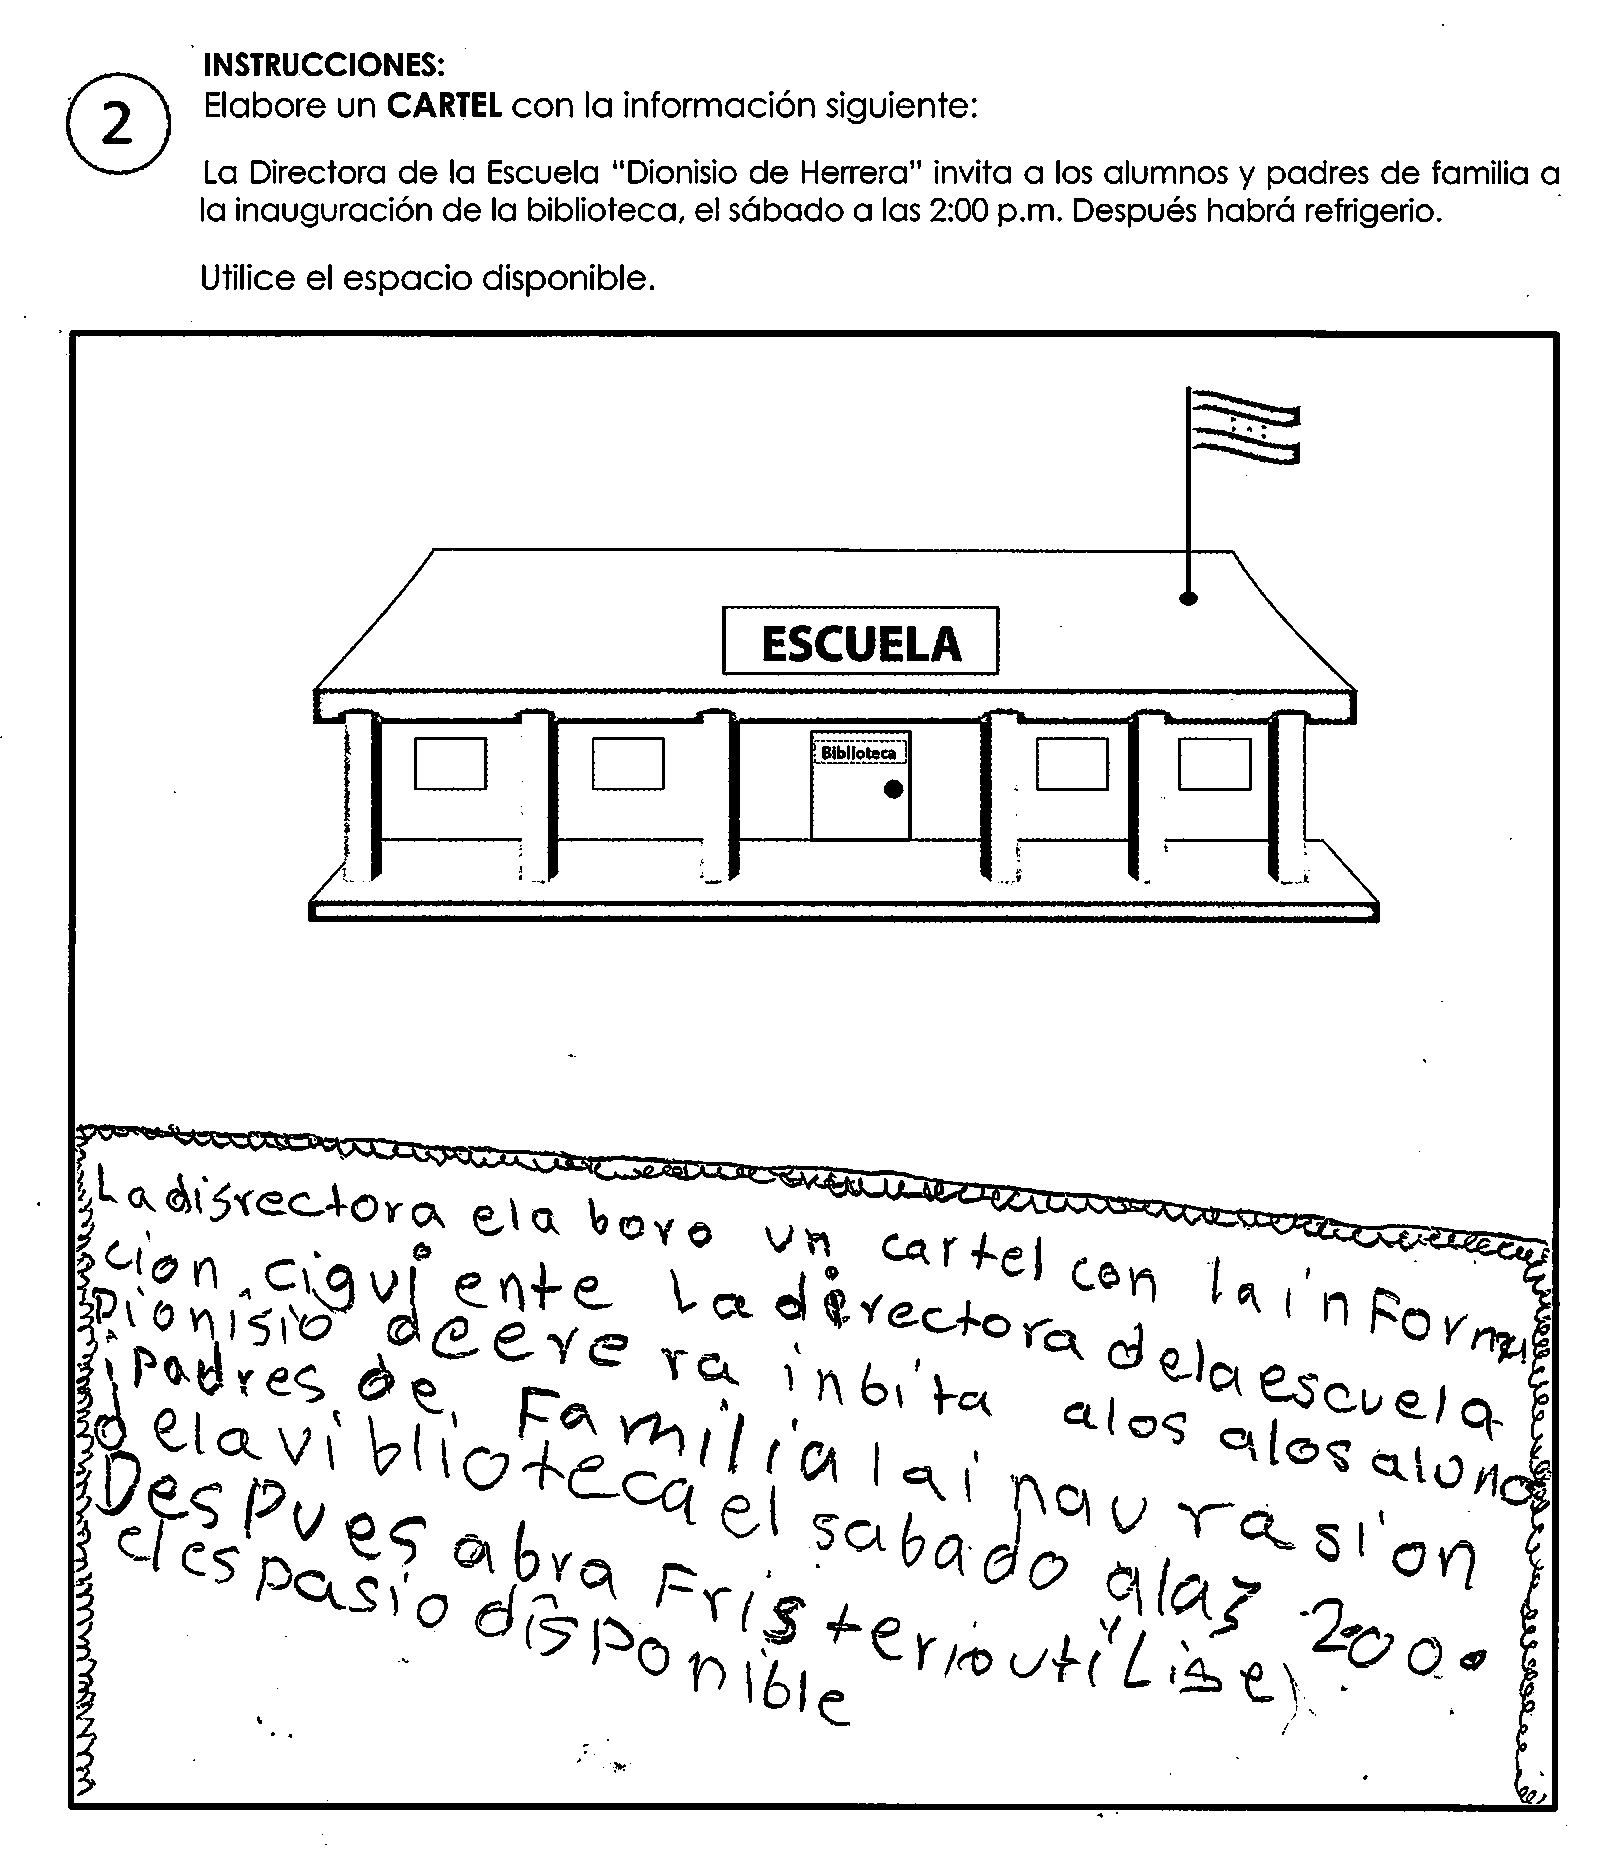 INSTRUCCIONES:
2
Elabore un CARTEL con la información siguiente:
La Directora de la Escuela "Dionisio de Herrera" invita a los alumnos y padres de familia a
la inauguración de la biblioteca, el sábado a las 2:00 p.m. Después habrá refrigerio.
Utilice el espacio disponible.
ESCUELA
Biblioteca
La disrectora ela boro un cartel con la informa
cion ciguiente La directora dela escuela
Dionisio deerera inbita alos alos aluno
i padres de Familia la inaurasion
dela viblioteca el sabado alaz 2:00.
Despues abra Fristerio utilise
el espasio disponible